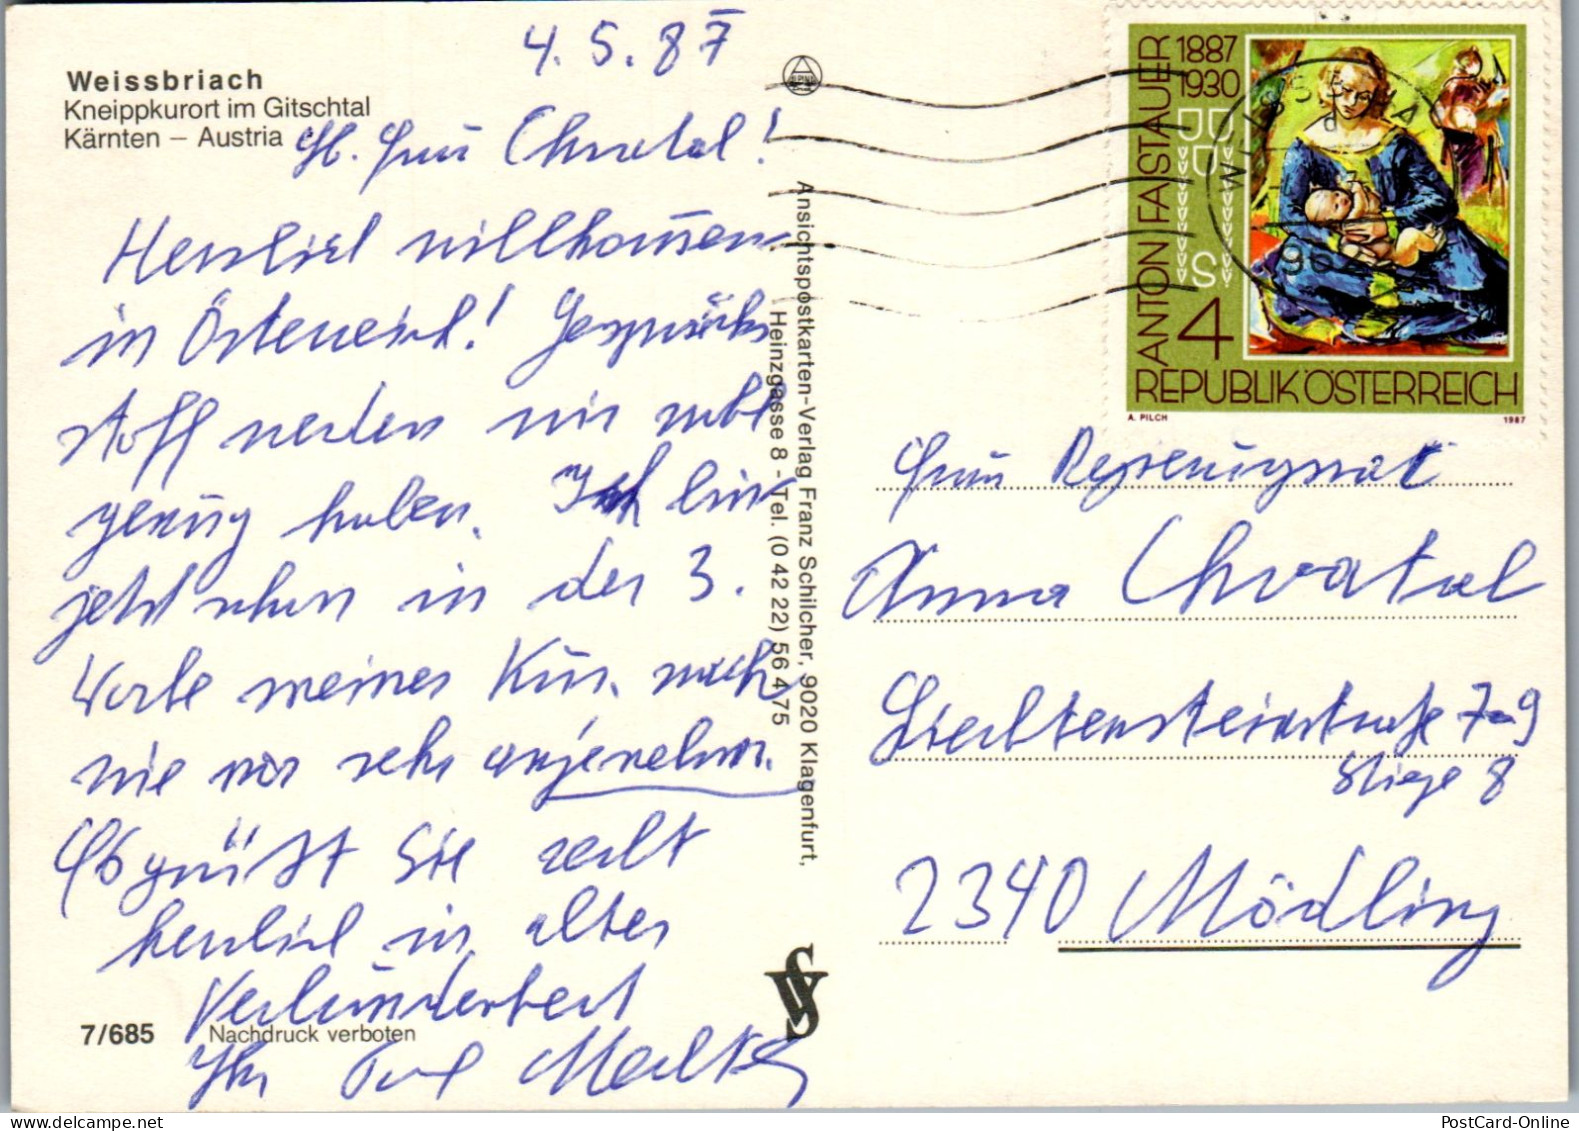 4. 5. 87
Weissbriach
Kneippkurort im Gitschtal
Kärnten – Austria
Frau Chvatal!
Herzlich willkommen
in Österreich! Gesprächs
stoff werden wir wohl
genug haben. Ich bin
jetzt schon in der 3.
Woche meiner Kur. mach
wie vor sehr angenehm.
Es grüßt Sie recht
herzlich in alter
Verbundenheit
Ihr
7/685
Nachdruck verboten
Ansichtspostkarten-Verlag Franz Schilcher, 9020 Klagenfurt,
Heinzgasse 8 - Tel. (0 42 22) 56 4 75
ANTON FAISTAUER 1887
1930
S 4
REPUBLIK ÖSTERREICH
A. PILCH 1987
Frau
Anna Chvatal
Liechtensteinstraße 7-9
Stiege 8
2340 Mödling
PostCard-Online